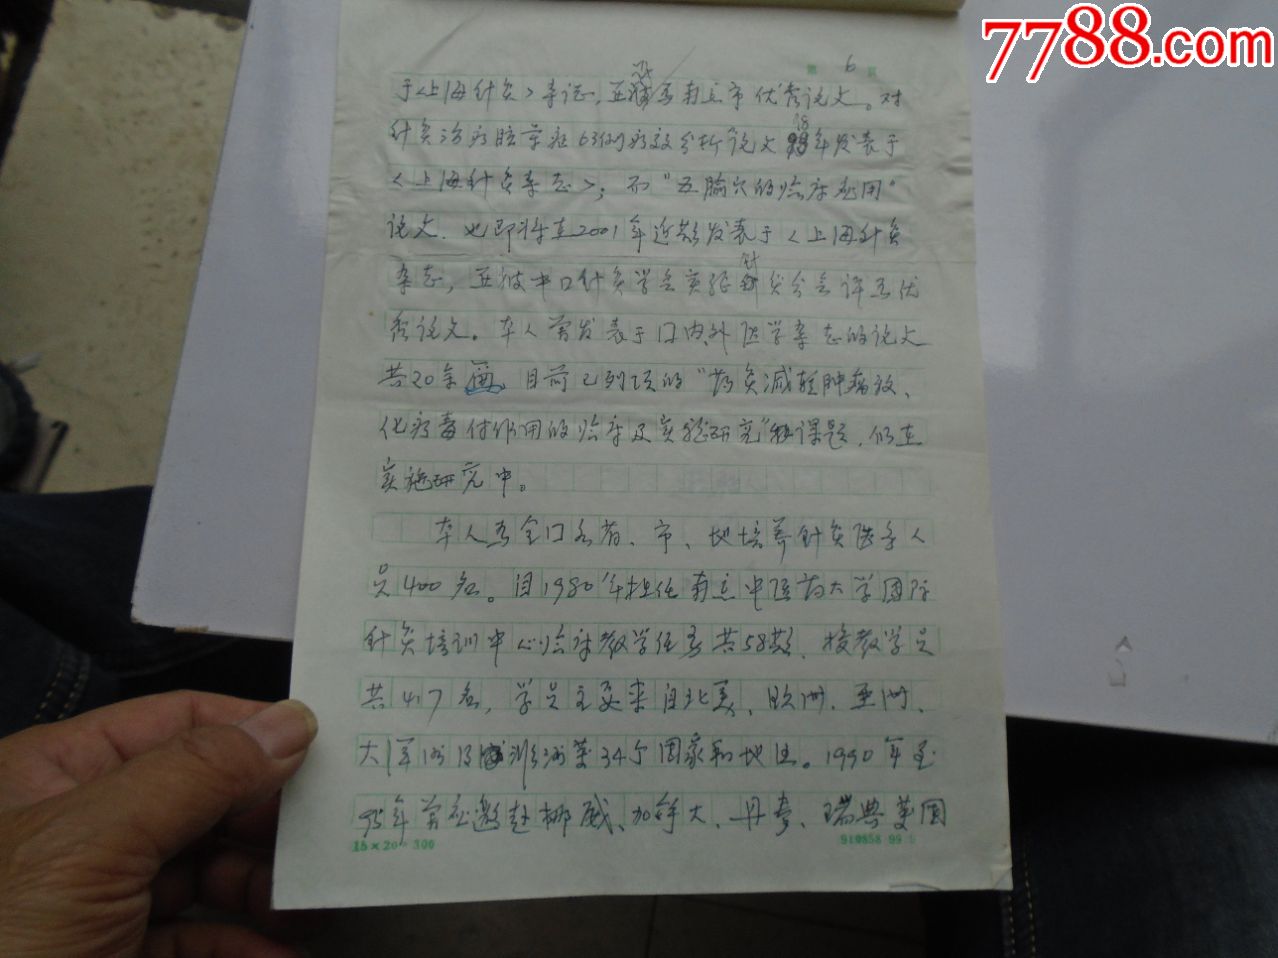 7788.com
第 6 页
于<上海针灸>杂志,并被评为南京市优秀论文。对
针灸治疗 63例疗效分析论文98年发表于
<上海针灸杂志>;而"五腧穴的临床应用"
论文.也即将在2001年近期发表于<上海针灸
杂志,并被中口针灸学会实验针灸分会评为优
秀论文。本人曾发表于口内、外医学杂志的论文
共20余篇,目前已列项的"药灸减轻肿瘤放、
化疗毒付作用的临床及实验研究"课题,仍在
实施研究中。
本人为全口各省、市、地培养针灸医务人
员400名。自1980年担任南京中医药大学国际
针灸培训中心临床教学任务共58期、授教学员
共417名,学员主要来自北美、欧洲、亚洲、
大洋洲及非洲等34个国家和地区。1990年至
95年曾应邀赴挪威、加拿大、丹麦、瑞典美国
15×20=300
910858 99